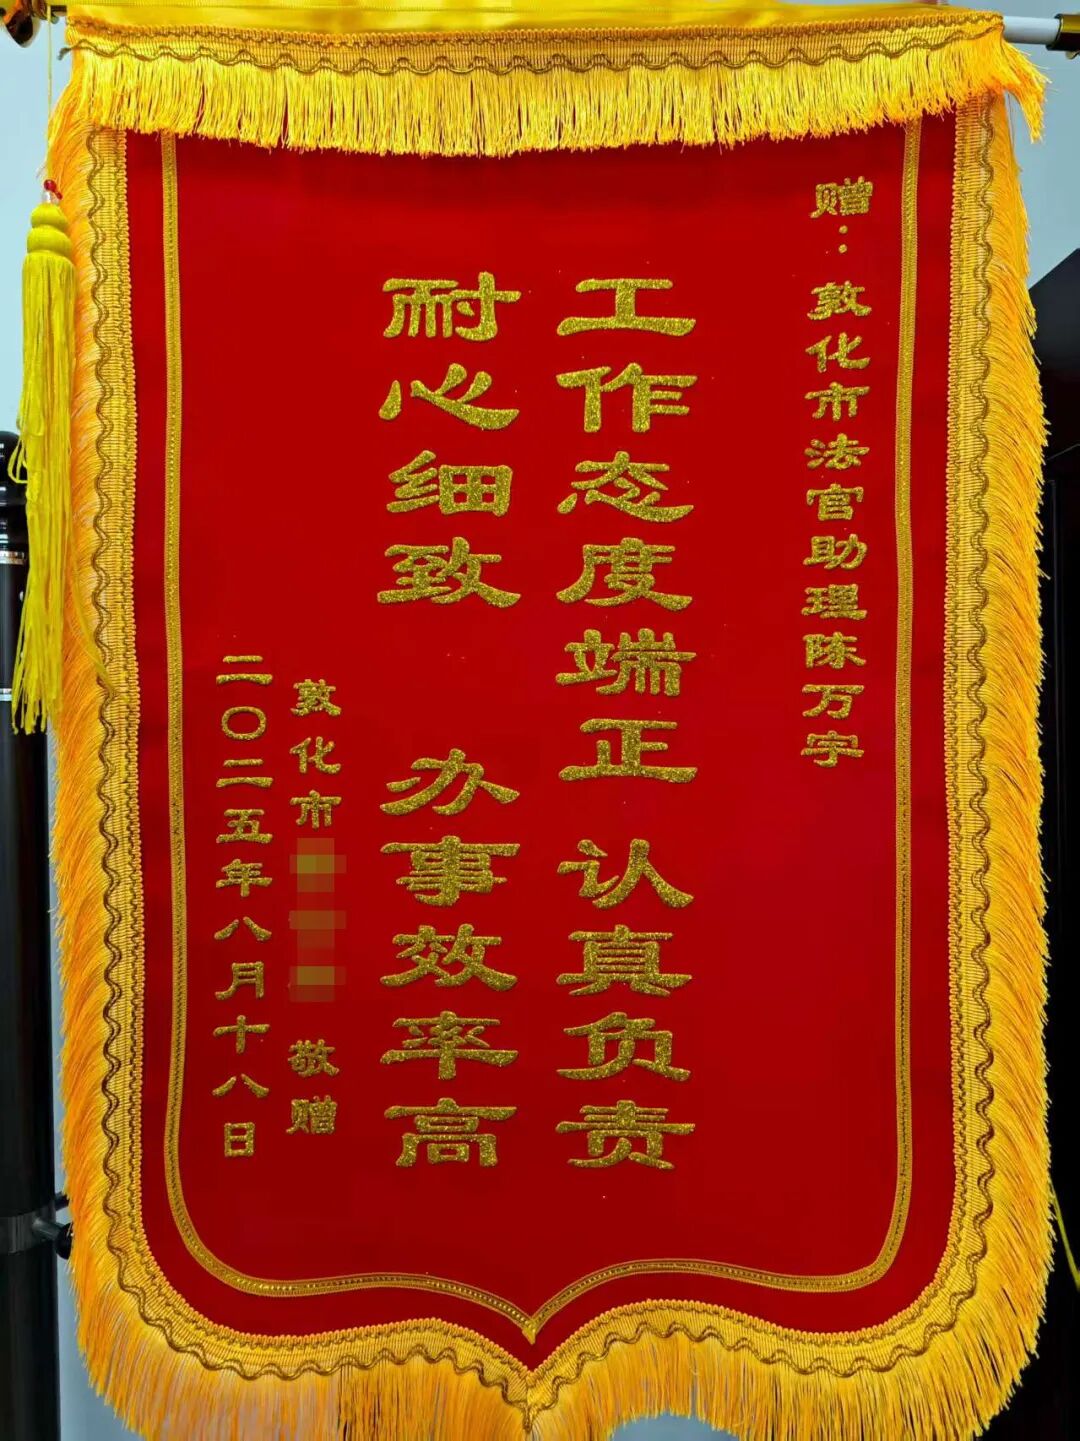 赠：敦化市法官助理陈万宇
工作态度端正 认真负责
耐心细致 办事效率高
敦化市 敬赠
二〇二五年八月十八日